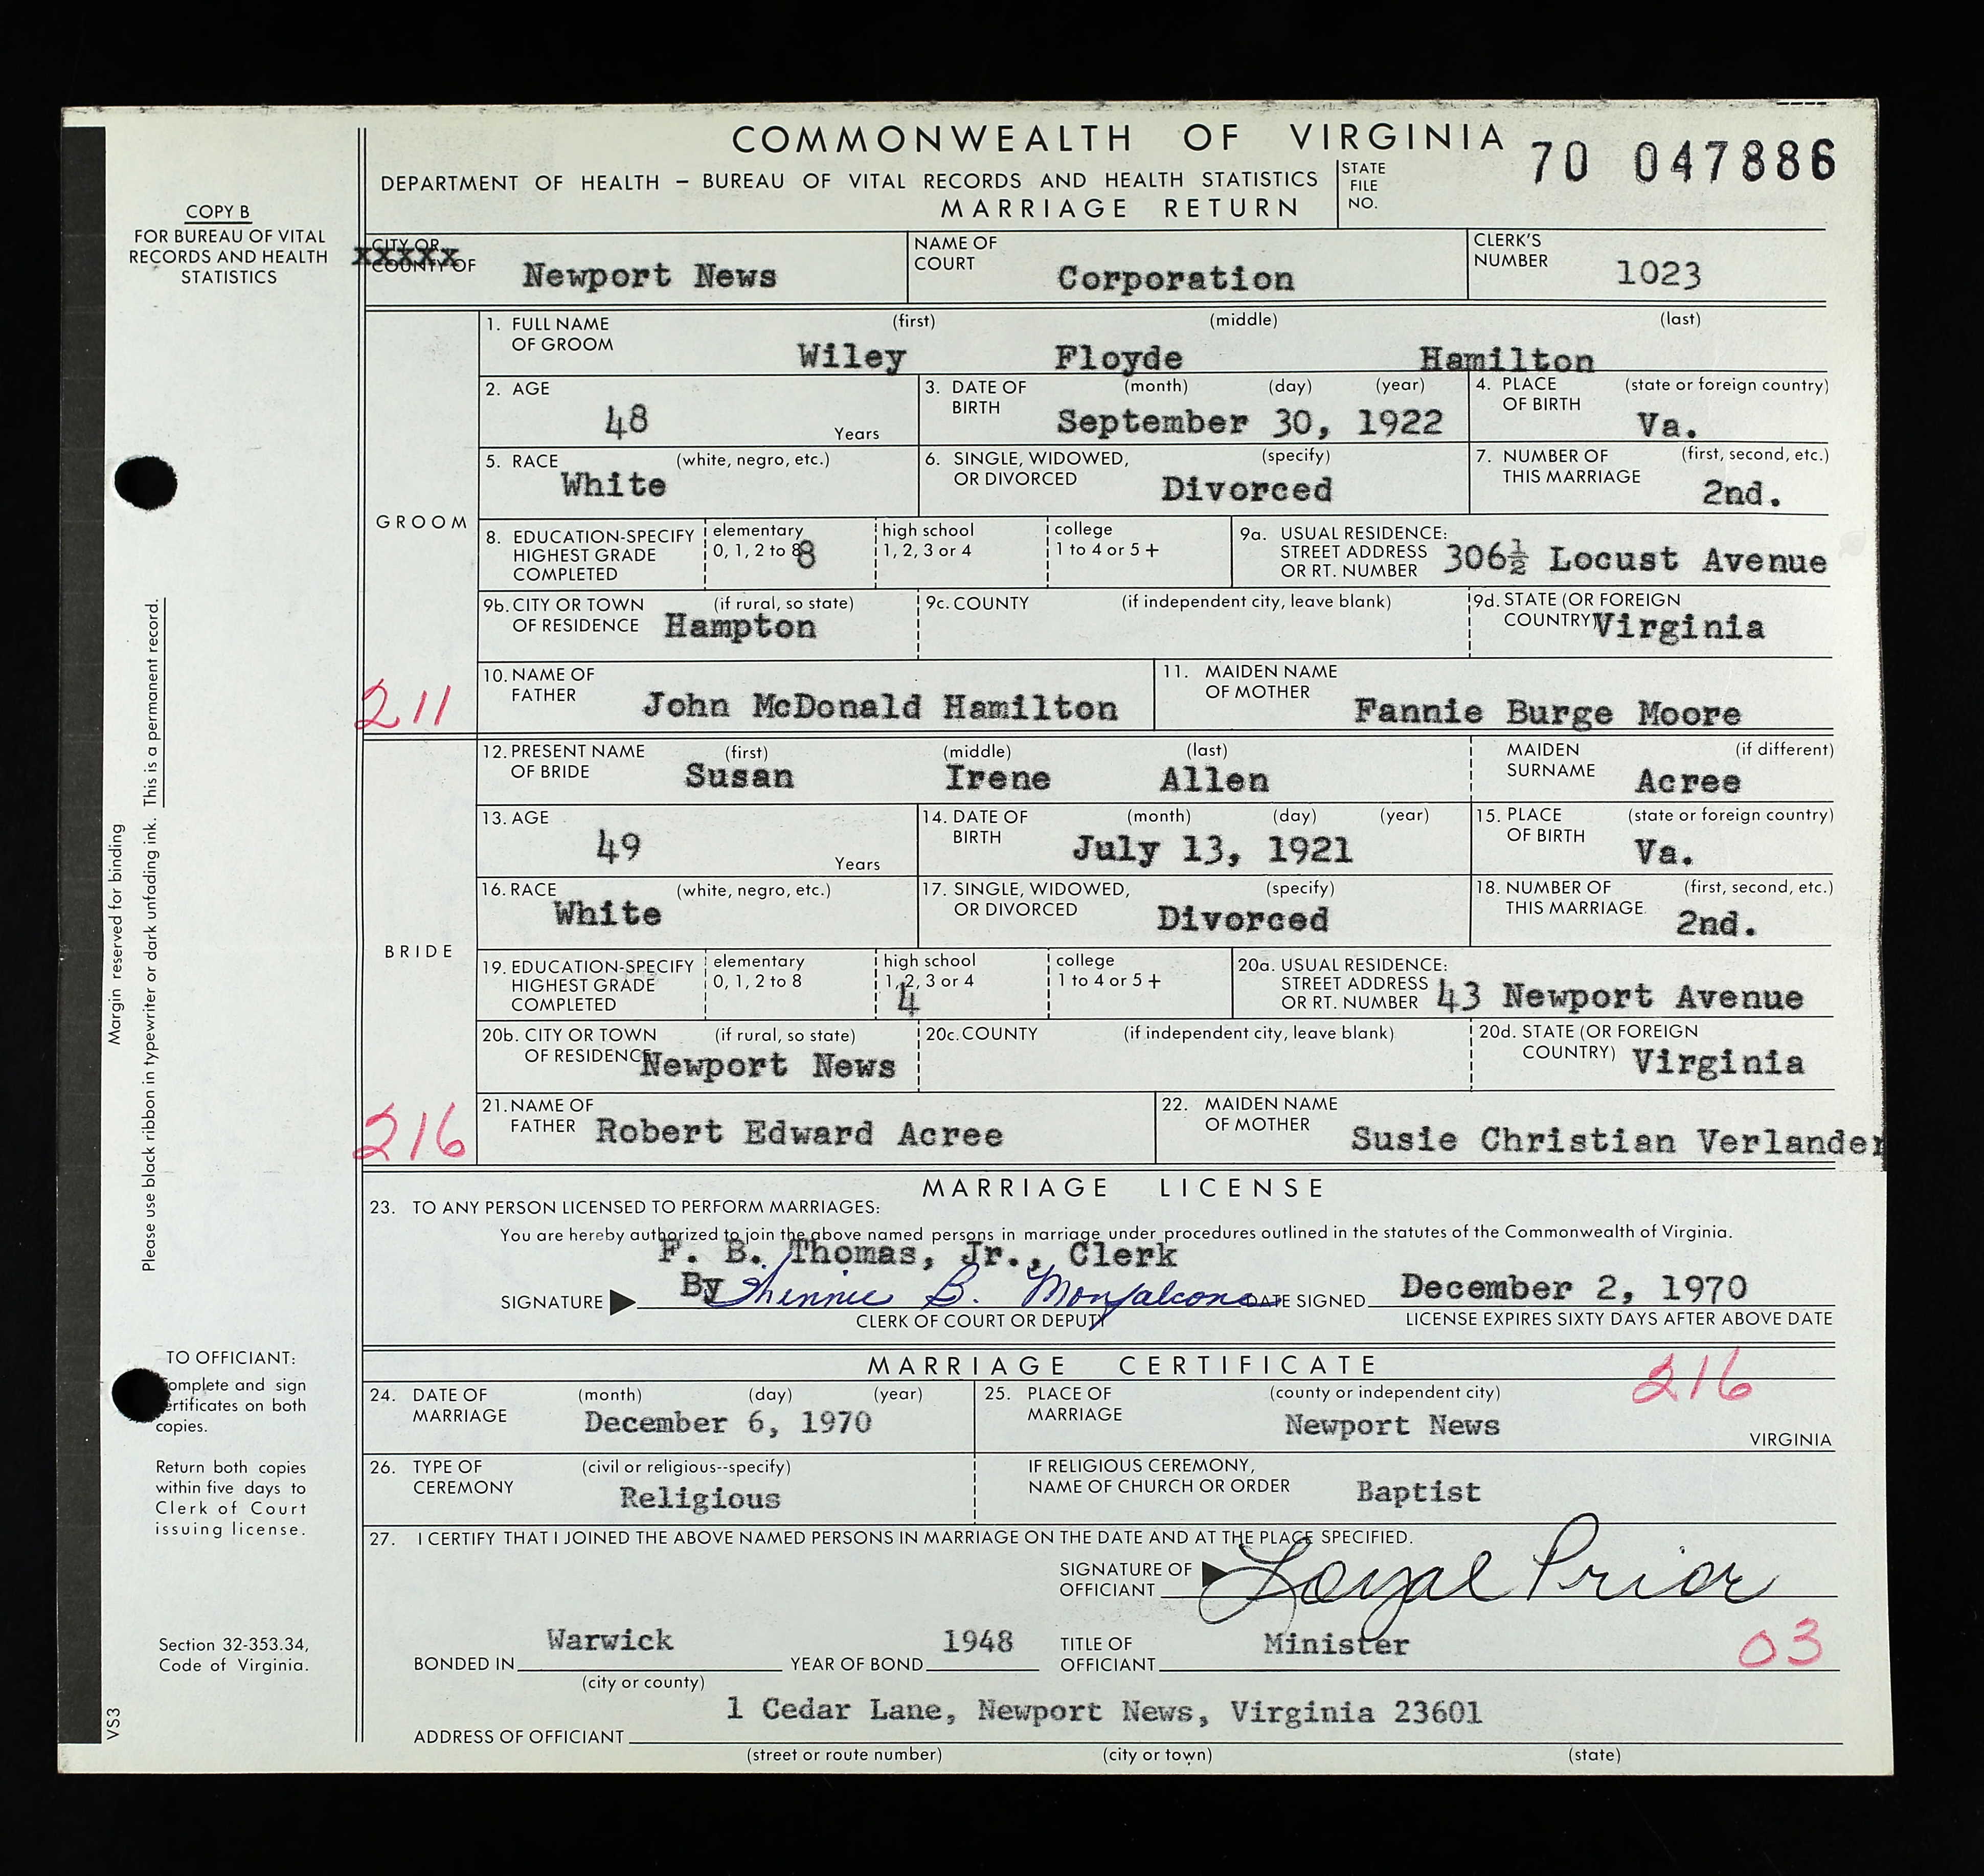 COMMONWEALTH OF VIRGINIA
DEPARTMENT OF HEALTH – BUREAU OF VITAL RECORDS AND HEALTH STATISTICS
MARRIAGE RETURN
STATE FILE NO. 70 047886
COPY B
FOR BUREAU OF VITAL
RECORDS AND HEALTH
STATISTICS
CITY OR
COUNTY OF Newport News
xxxxx
NAME OF COURT Corporation
CLERK'S NUMBER 1023
GROOM
1. FULL NAME OF GROOM (first) (middle) (last)
Wiley Floyde Hamilton
2. AGE 48 Years
3. DATE OF BIRTH (month) (day) (year) September 30, 1922
4. PLACE OF BIRTH (state or foreign country) Va.
5. RACE (white, negro, etc.) White
6. SINGLE, WIDOWED, OR DIVORCED (specify) Divorced
7. NUMBER OF THIS MARRIAGE (first, second, etc.) 2nd.
8. EDUCATION-SPECIFY HIGHEST GRADE COMPLETED
elementary 0, 1, 2 to 8 8
high school 1, 2, 3 or 4
college 1 to 4 or 5 +
9a. USUAL RESIDENCE: STREET ADDRESS OR RT. NUMBER 306½ Locust Avenue
9b. CITY OR TOWN OF RESIDENCE (if rural, so state) Hampton
9c. COUNTY (if independent city, leave blank)
9d. STATE (OR FOREIGN COUNTRY) Virginia
211
10. NAME OF FATHER John McDonald Hamilton
11. MAIDEN NAME OF MOTHER Fannie Burge Moore
BRIDE
12. PRESENT NAME OF BRIDE (first) (middle) (last)
Susan Irene Allen
MAIDEN SURNAME (if different) Acree
13. AGE 49 Years
14. DATE OF BIRTH (month) (day) (year) July 13, 1921
15. PLACE OF BIRTH (state or foreign country) Va.
16. RACE (white, negro, etc.) White
17. SINGLE, WIDOWED, OR DIVORCED (specify) Divorced
18. NUMBER OF THIS MARRIAGE (first, second, etc.) 2nd.
19. EDUCATION-SPECIFY HIGHEST GRADE COMPLETED
elementary 0, 1, 2 to 8
high school 1, 2, 3 or 4 4
college 1 to 4 or 5 +
20a. USUAL RESIDENCE: STREET ADDRESS OR RT. NUMBER 43 Newport Avenue
20b. CITY OR TOWN OF RESIDENCE (if rural, so state) Newport News
20c. COUNTY (if independent city, leave blank)
20d. STATE (OR FOREIGN COUNTRY) Virginia
216
21. NAME OF FATHER Robert Edward Acree
22. MAIDEN NAME OF MOTHER Susie Christian Verlander
MARRIAGE LICENSE
23. TO ANY PERSON LICENSED TO PERFORM MARRIAGES:
You are hereby authorized to join the above named persons in marriage under procedures outlined in the statutes of the Commonwealth of Virginia.
F. B. Thomas, Jr., Clerk
SIGNATURE By B. Monfalcone DATE SIGNED December 2, 1970
CLERK OF COURT OR DEPUTY
LICENSE EXPIRES SIXTY DAYS AFTER ABOVE DATE
MARRIAGE CERTIFICATE
216
24. DATE OF MARRIAGE (month) (day) (year) December 6, 1970
25. PLACE OF MARRIAGE (county or independent city) Newport News VIRGINIA
26. TYPE OF CEREMONY (civil or religious--specify) Religious
IF RELIGIOUS CEREMONY, NAME OF CHURCH OR ORDER Baptist
27. I CERTIFY THAT I JOINED THE ABOVE NAMED PERSONS IN MARRIAGE ON THE DATE AND AT THE PLACE SPECIFIED.
SIGNATURE OF OFFICIANT Loyal Prior
BONDED IN Warwick (city or county)
YEAR OF BOND 1948
TITLE OF OFFICIANT Minister
03
ADDRESS OF OFFICIANT 1 Cedar Lane, Newport News, Virginia 23601
(street or route number) (city or town) (state)
Margin reserved for binding
Please use black ribbon in typewriter or dark unfading ink. This is a permanent record.
TO OFFICIANT:
omplete and sign
ertificates on both
copies.
Return both copies
within five days to
Clerk of Court
issuing license.
Section 32-353.34,
Code of Virginia.
VS3